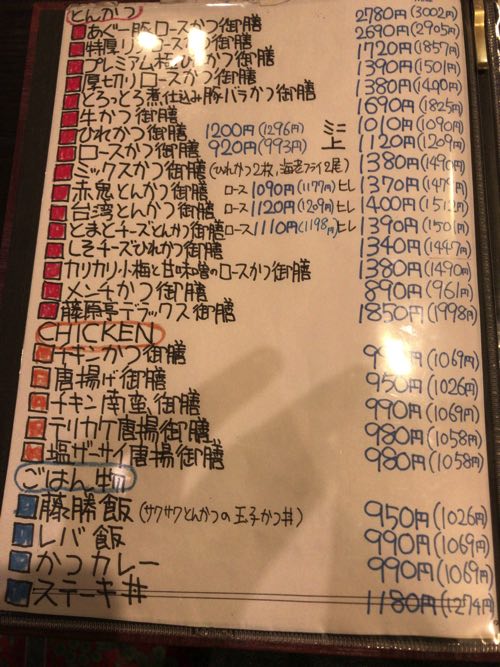 とんかつ
あぐー豚ロースかつ御膳 2780円(3002円)
特厚リブロースかつ御膳 2690円(2905円)
プレミアム極ひれかつ御膳 1720円(1857円)
厚切りロースかつ御膳 1390円(1501円)
とろっとろ煮仕込み豚バラかつ御膳 1380円(1490円)
牛かつ御膳 1690円(1825円)
ひれかつ御膳 1200円(1296円) ミニ 1010円(1090円)
ロースかつ御膳 920円(993円) 上 1120円(1209円)
ミックスかつ御膳 (ひれかつ2枚,海老フライ2尾) 1380円(1490円)
赤鬼とんかつ御膳 ロース 1090円(1177円) ヒレ 1370円(1479円)
台湾とんかつ御膳 ロース 1120円(1209円) ヒレ 1400円(1512円)
とまとチーズとんかつ御膳 ロース 1110円(1198円) ヒレ 1390円(1501円)
しそチーズひれかつ御膳 1340円(1447円)
カリカリ小梅と甘味噌のロースかつ御膳 1380円(1490円)
メンチかつ御膳 890円(961円)
藤原亭デラックス御膳 1850円(1998円)
CHICKEN
チキンかつ御膳 990円(1069円)
唐揚げ御膳 950円(1026円)
チキン南蛮御膳 990円(1069円)
テリカケ唐揚御膳 980円(1058円)
塩ザーサイ唐揚御膳 980円(1058円)
ごはん物
藤勝飯 (サクサクとんかつの玉子かつ丼) 950円(1026円)
レバ飯 990円(1069円)
かつカレー 990円(1069円)
ステーキ丼 1180円(1274円)